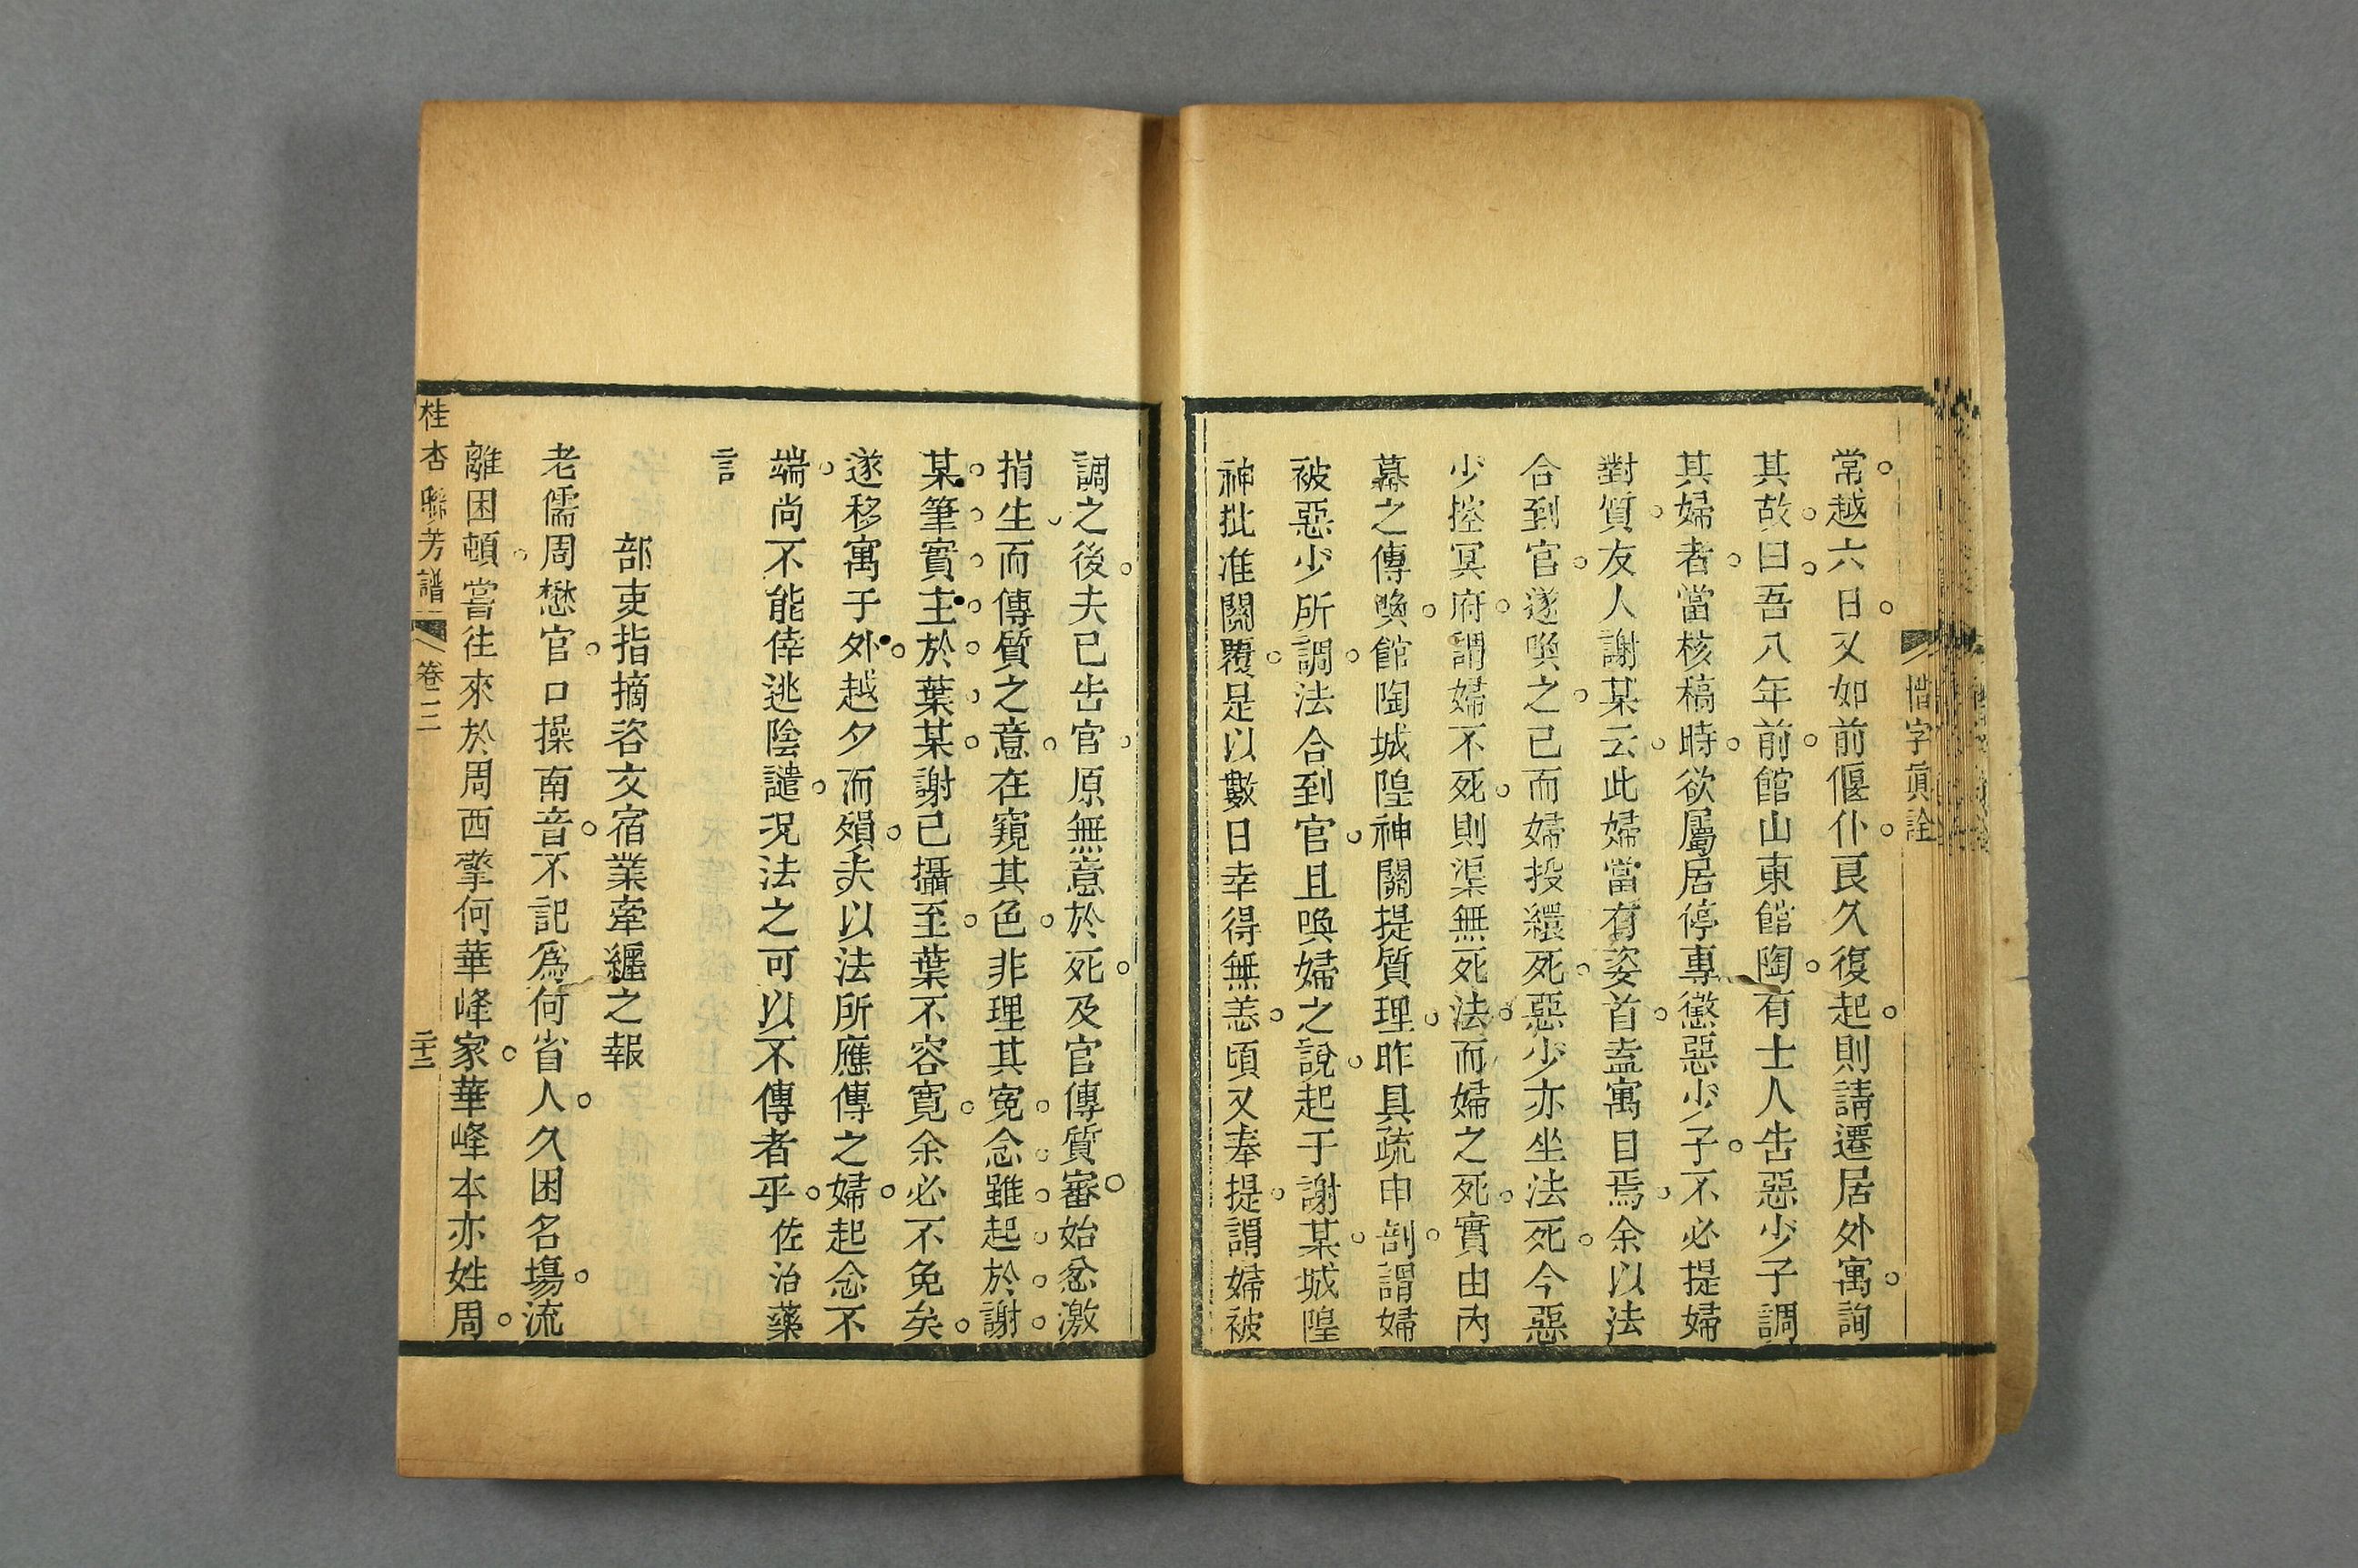 惜字眞詮
常越六日又如前偃仆良久復起則請遷居外寓詢
其故曰吾八年前館山東館陶有士人告惡少子調
其婦者當核稿時欲屬居停專懲惡少子不必提婦
對質友人謝某云此婦當有姿首盍寓目焉余以法
合到官遂喚之已而婦投繯死惡少亦坐法死今惡
少控冥府謂婦不死則渠無死法而婦之死實由內
幕之傳喚館陶城隍神關提質理昨具疏申剖謂婦
被惡少所調法合到官且喚婦之說起于謝某城隍
神批准關覆是以數日幸得無恙頃又奉提謂婦被
調之後夫已告官原無意於死及官傳質審始忿激
捐生而傳質之意在窺其色非理其冤念雖起於謝
某筆實主於葉某謝已攝至葉不容寬余必不免矣
遂移寓于外越夕而殞夫以法所應傳之婦起念不
端尚不能倖逃陰譴况法之可以不傳者乎佐治藥
言
部吏指摘咨文宿業牽纒之報
老儒周懋官口操南音不記爲何省人久困名場流
離困頓嘗往來於周西擎何華峰家華峰本亦姓周
桂杏聯芳譜 卷三 二十三